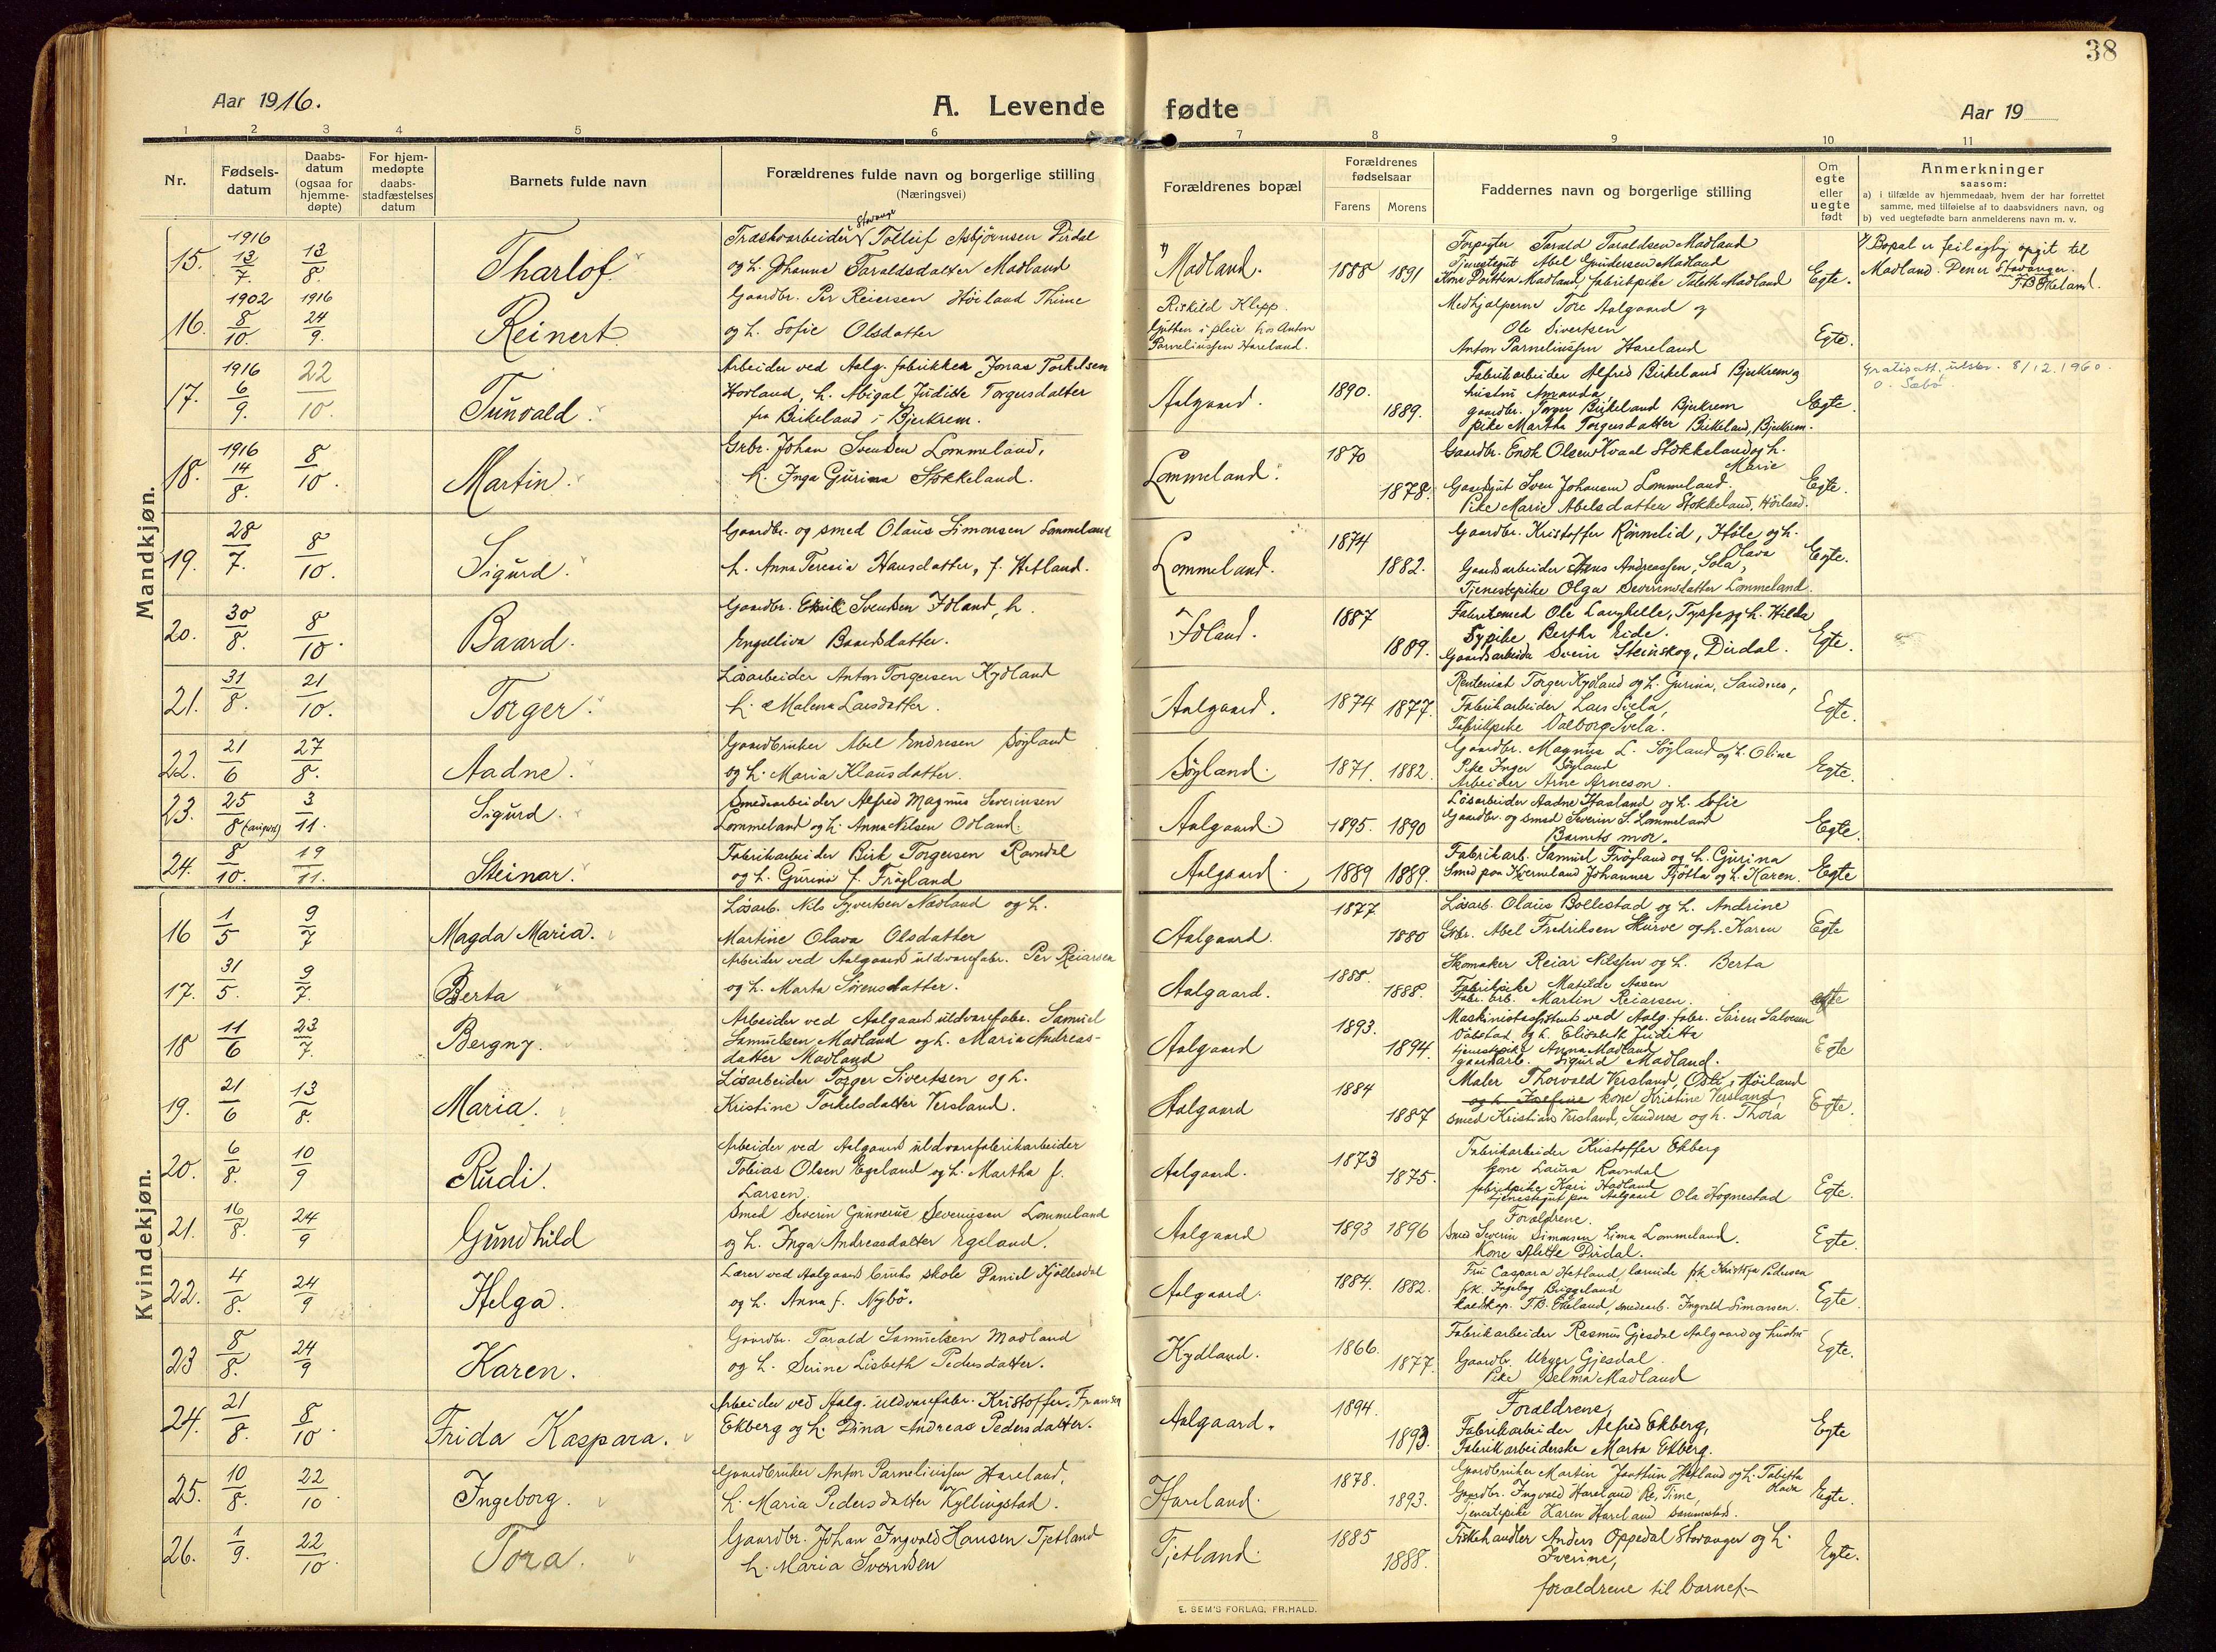 38
Aar 1916.
A. Levende fødte
Aar 19
1 2 3 4 5 6 7 8 9 10 11
Nr.
Fødsels-
datum
Daabs-
datum
(ogsaa for
hjemme-
døpte)
For hjem-
medøpte
daabs-
stadfæstelses
datum
Barnets fulde navn
Forældrenes fulde navn og borgerlige stilling
(Næringsvei)
Forældrenes bopæl
Forældrenes
fødselsaar
Farens Morens
Faddernes navn og borgerlige stilling
Om
egte
eller
uegte
født
Anmerkninger
saasom:
a) i tilfælde av hjemmedaab, hvem der har forrettet
samme, med tilføielse af to daabsvidners navn, og
b) ved uegtefødte barn anmelderens navn m. v.
Mandkjøn.
15. 1916 13/7 13/8 Tharlof.
Stavanger
Træskoarbeider Tolleif Asbjörnsen Dirdal
og h. Johanne Taraldsdatter Madland
1) Madland. 1888 1891
Forpagter Tarald Taraldsen Madland
Tjenestegut Abel Gundersen Madland
Kone Dorthea Madland, fabrikpike Talette Madland
Egte.
1) Bopæl er feilagtig opgit til
Madland. Den er Stavanger.
T.B. Ekeland.
16. 1902 8/10 1916 24/9. Reinert
Gaardbr. Per Reiersen Höiland Thime
og h. Sofie Olsdatter
Riskild Klepp.
Gutten i pleie hos Anton
Parneliussen Hareland.
Medhjælperne Tore Aalgaard og
Ole Sivertsen
Anton Parneliussen Hareland
Egte.
17. 1916 6/9. 22/10. Tunvald
Arbeider ved Aalg. fabrikker Jonas Torkelsen
Hovland, h. Abigal Juditte Torgersdatter
fra Birkeland i Bjerkrem.
Aalgaard. 1890. 1889.
Fabrikarbeider Alfred Birkeland Bjerkrem og
hustru Amanda
gaardbr. Torger Birkeland Bjerkrem
pike Martha Torgersdatter Birkeland, Bjerkrem.
Egte.
Gratisatt. utskr. 8/12.1960.
O. Sæbö
18. 1916 14/8. 8/10. Martin.
Grbr. Johan Svendsen Lommeland,
h. Inga Gurina Stokkeland.
Lommeland. 1870 1878.
Gaardbr. Enok Olsen Kvaal Stokkeland og h.
Marie
Gaardgut Sven Johansen Lommeland.
Pike Marie Abelsdatter Stokkeland, Höiland.
Egte.
19. 28/7. 8/10. Sigurd.
Gaardbr. og smed Olaus Simonsen Lommeland
h. Anna Teresia Hansdatter, f. Hetland.
Lommeland. 1874 1882.
Gaardbr. Kristoffer Rönnelid, Höle og h.
Olava
Gaardsarbeider Jens Andreassen, Sola,
Tjenestepike Olga Severinsdatter Lommeland.
Egte.
20. 30/8. 8/10. Baard.
Gaardbr. Eneik Svendsen Idland, h.
Engeliva Baardsdatter.
Idland. 1887 1889.
Fabriksmed Ole Langhelle, Tysse og h. Hilda
Sypike Berthe Eide.
Gaardsarbeider Svein Steinskog, Dirdal.
Egte.
21. 31/8. 21/10. Torger.
Lösarbeider Anton Torgersen Kydland
h. Malena Larsdatter.
Aalgaard. 1874 1877.
Rentenist Torger Kydland og h. Gurina, Sandnes,
Fabrikarbeider Lars Svela,
Fabrikpike Valborg Svela.
Egte.
22. 21/6 27/8. Aadne.
Gaardbruker Abel Endresen Söyland
og h. Maria Klausdatter.
Söyland. 1871. 1882.
Gaardbr. Magnus L. Söyland og h. Oline
Pike Inger Söyland
Arbeider Arne Arneson.
Egte.
23. 25/8 3/11. Sigurd.
Smedarbeider Alfred Magnus Severinsen
Lommeland og h. Anna Nilsen Odland.
Aalgaard. 1895. 1890
Lösarbeider Aadne Haaland og h. Sofie
Gaardbr. og smed Severin S. Lommeland
Barnets mor.
Egte.
24. 8/10. 19/11. Steinar.
Fabrikarbeider Birk Torgersen Ravndal
og h. Gurine f. Fröyland
Aalgaard. 1889 1889.
Fabrikarb. Samuel Fröyland og h. Gurina
Smed paa Kverneland Johannes Tjötta og h. Karen.
Egte
Kvindekjøn.
16 1/5 9/7 Magda Maria.
Lösarb. Nils Syvertsen Nødland og h.
Martine Olava Olsdatter
Aalgaard. 1877 1880
Lösarb. Olaus Bollestad og h. Andrine
Grbr. Abel Fredriksen Skurve og h. Karen
Egte
17. 31/5. 9/7. Berta
Arbeider ved Aalgaard uldvarefabr. Per Reiarsen
og h. Marta Sörensdatter.
Aalgaard. 1888. 1888.
Skomaker Reiar Nilssen og h. Berta
Fabrikpike Matilde Aasen
Fabr. arb. Martin Reiarsen.
egte
18 11/6 23/7. Bergny.
Arbeider ved Aalgaard uldvarefabr. Samuel
Samuelsen Madland og h. Maria Andreas-
datter Madland
Aalgaard 1893. 1894.
Maskinistassistent ved Aalg. fabr. Sören Salvesen
Vatstad og h. Elisabeth Juditte
tjenestepike Anna Madland
gaardarb. Sigurd Madland.
Egte
19. 21/6 13/8. Maria.
Lösarbeider Torger Sivertsen og h.
Kristine Torkelsdatter Versland.
Aalgaard 1884 1887
Maler Thorvald Versland, Osli, Höiland
og h. Josefine kone Kristine Versland,
smed Kristian Versland, Sandnes og h. Thora
Egte.
20. 6/8. 10/9 Rudi.
Arbeider ved Aalgaard uldvarefabrikarbeider
Tobias Olsen Egeland og h. Martha f.
Larsen
Aalgaard. 1873 1875.
Fabrikarbeider Kristoffer Ekberg
kone Laura Ravndal
fabrikpike Kari Hadland
tjenestegut paa Aalgaard Ola Hognestad
Egte.
21. 16/8. 24/9 Gundhild
Smed Severin Gunnerius Severinsen Lommeland
og h. Inga Andreasdatter Egeland.
Aalgaard 1893 1896
Forældrene.
Smed Severin Simonsen Lima Lommeland.
Kone Alette Dirdal.
Egte.
22. 4/8. 24/9 Helga.
Lærer ved Aalgaards bruks skole Daniel Kjöllesdal
og h. Anna f. Nybö.
Aalgaard. 1884. 1882.
Fru Caspara Hetland, lærerinde frk. Kristofa Pedersen
frk. Ingeborg Bueggeland
lærer T.B. Ekeland, smedarb. Ingvald Simonsen.
Egte
23 8/8. 24/9 Karen.
Gaardbr. Tarald Samuelsen Madland
og h. Serine Lisbeth Pedersdatter.
Kydland. 1866. 1877.
Fabrikarbeider Rasmus Gjesdal Aalgaard og hustru
Gaardbr. Weyer Gjesdal
Pike Selma Madland
Egte.
24. 21/8. 8/10. Frida Kaspara.
Arbeider ved Aalg. uldvarefabr. Kristoffer Fransen
Ekberg og h. Dina Andreas Pedersdatter.
Aalgaard. 1894. 1893.
Forældrene,
Fabrikarbeider Alfred Ekberg,
Fabrikarbeiderske Marta Ekberg.
Egte
25. 10/8. 22/10. Ingeborg.
Gaardbruker Anton Parneliussen Hareland,
h. Maria Pedersdatter Kyllingstad.
Hareland. 1878. 1893.
Gaardbruker Martin Jaattun Hetland og h. Tabitta
Olava
Gaardbr. Ingvald Hareland Re, Time,
Tjenestepike Karen Hareland sammesteds.
Egte.
26. 1/9. 22/10. Tora.
Gaardbr. Johan Ingvald Hansen Tjetland
h. Maria Svendsen
Tjetland. 1885 1888.
Fiskehandler Anders Oppedal Stavanger og h.
Iverine,
forældrene til barnet.
Egte.
E. SEM'S FORLAG, FR.HALD.